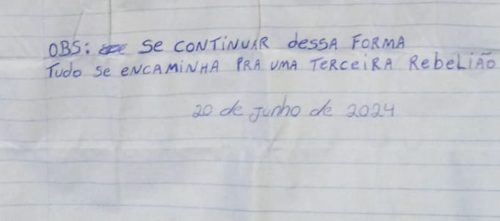 OBS: SE CONTINUAR dESSA FORMA
Tudo SE ENCAMINHA PRA UMA TERCEIRA RebeLIÃO
20 de junho de 2024